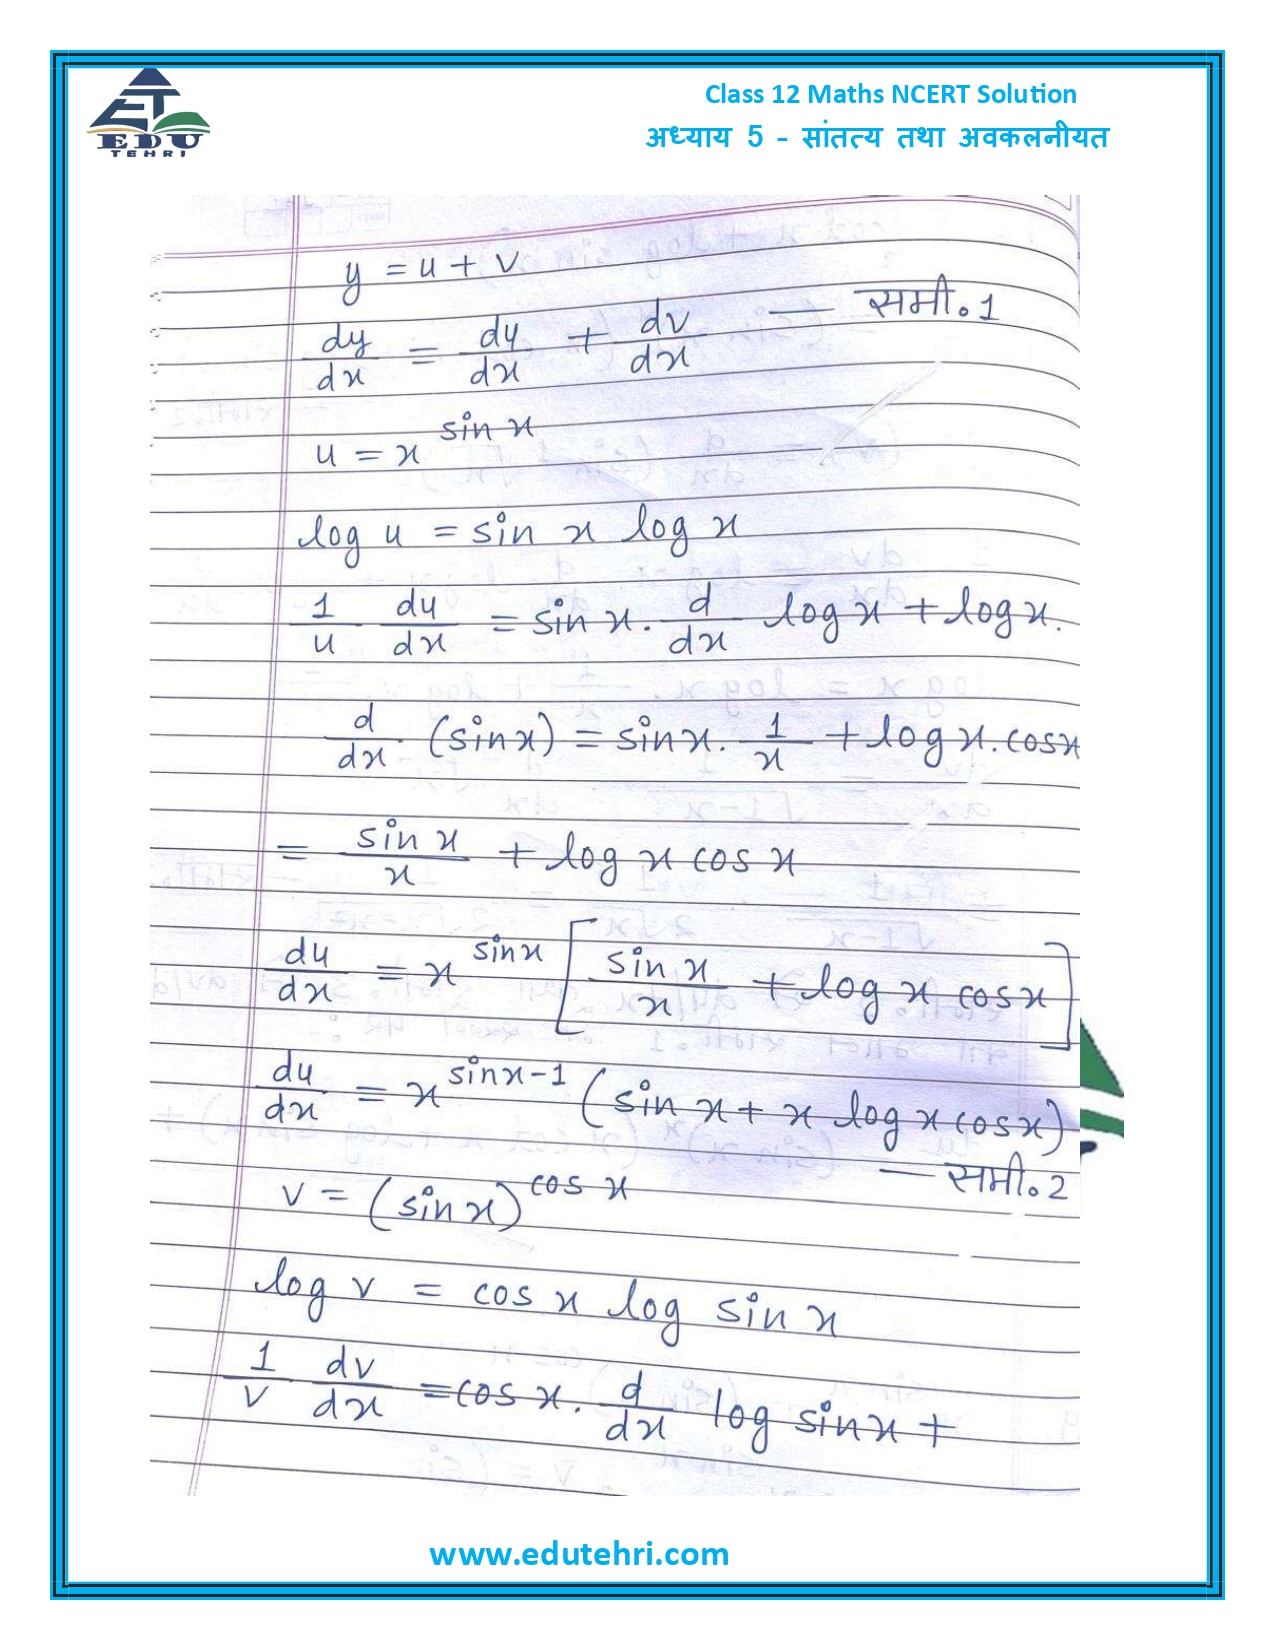 Class 12 Maths NCERT Solution
अध्याय 5 - सांतत्य तथा अवकलनीयत
EDU
TEHRI
y = u + v
dy/dx = du/dx + dv/dx — समी.1
u = x^sin x
log u = sin x log x
1/u du/dx = sin x . d/dx log x + log x .
d/dx . (sin x) = sin x . 1/x + log x . cos x
= sin x/x + log x cos x
du/dx = x^sin x [sin x/x + log x cos x]
du/dx = x^sin x-1 (sin x + x log x cos x)
— समी.2
v = (sin x)^cos x
log v = cos x log sin x
1/v dv/dx = cos x . d/dx log sin x +
www.edutehri.com